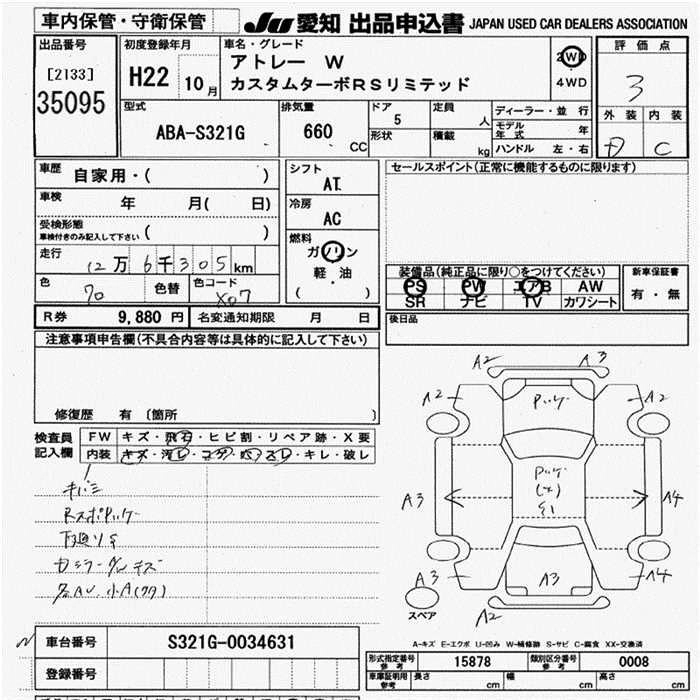 車内保管・守衛保管 JU 愛知 出品申込書 JAPAN USED CAR DEALERS ASSOCIATION
出品番号 [2133] 35095
初度登録年月 H22 10月
車名・グレード アトレー W カスタムターボRSリミテッド
2WD
4WD
評価点 3
外装 内装 C
型式 ABA-S321G
排気量 660 CC
ドア 5
形状
定員 人
積載 kg
ディーラー・並行
モデル年式 年
ハンドル 左・右
車歴 自家用・( )
車検 年 月( 日)
受検形態
車検付きのみ記入して下さい ( )
走行 12万6千305km
色 色替 色コード X07
シフト AT
冷房 AC
燃料 ガソリン
軽・油
( )
セールスポイント(正常に機能するものに限ります)
装備品(純正品に限り○をつけてください)
PS PW エアB AW
SR ナビ TV カワシート
新車保証書
有・無
後日品
R券 9,880 円 名変通知期限 月 日
注意事項申告欄(不具合内容等は具体的に記入して下さい)
修復歴 有 〔箇所 〕
検査員記入欄
FW キズ・飛石・ヒビ割・リペア跡・X要
内装 キズ・汚レ・コゲ・穴・スレ・キレ・破レ
A2 A3
A2 A2
A3 A4
A3 A3 A4
A2
スペア
A-キズ E-エクボ U-凹み W-補修跡 S-サビ C-腐食 XX-交換済
車台番号 S321G-0034631
登録番号
形式指定番号 参考 15878 類別区分番号 参考 0008
車庫証明用 参考 長さ cm 幅 cm 高さ cm